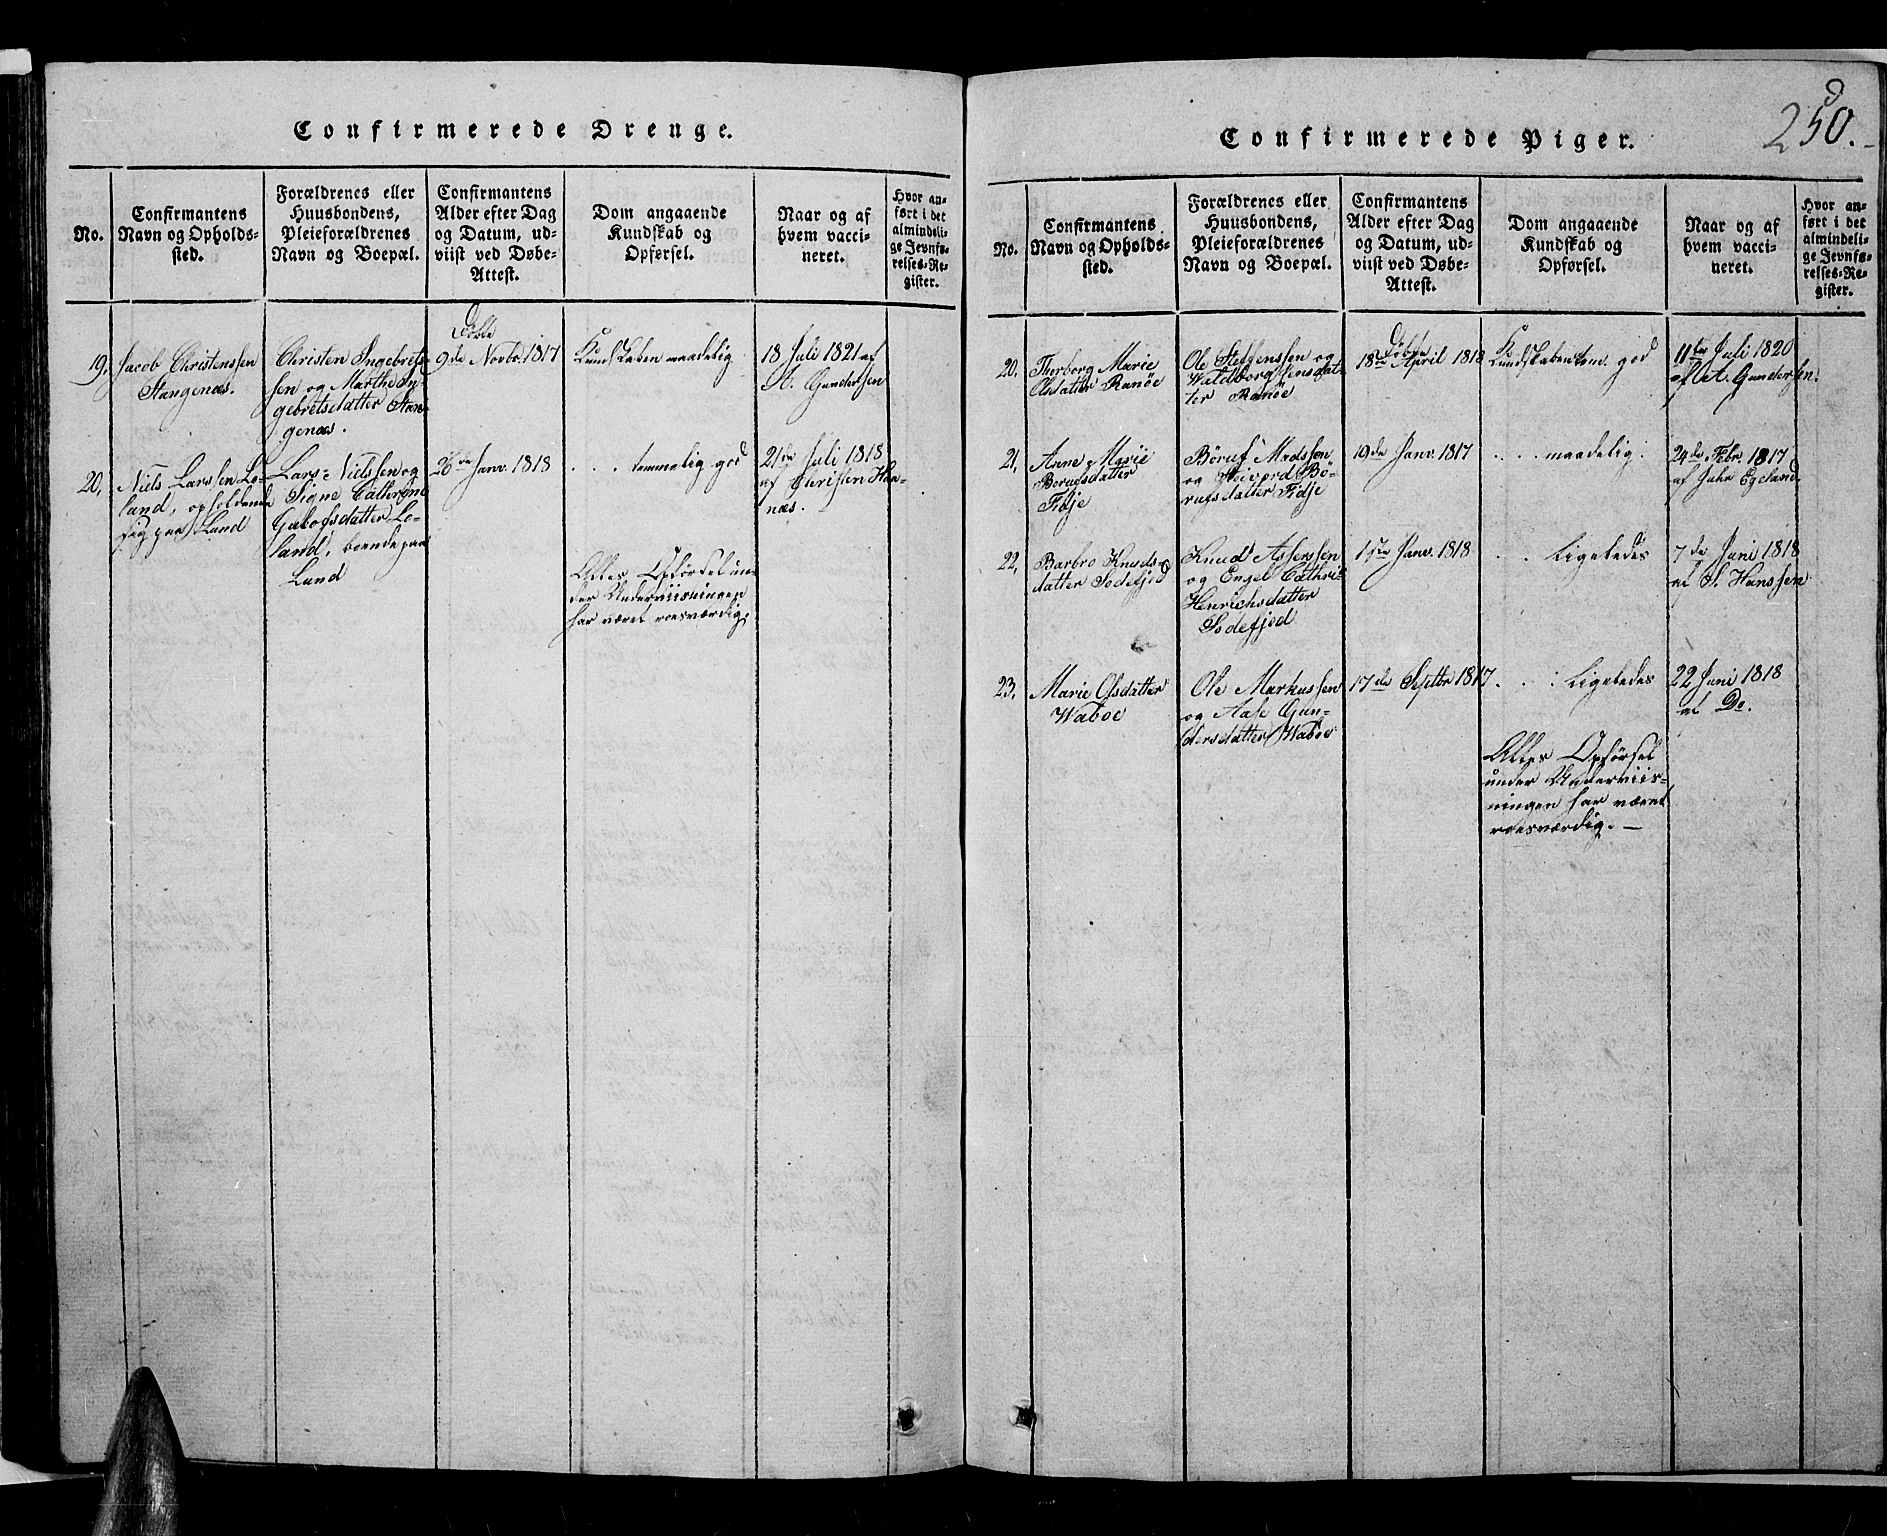 Confirmerede Drenge.
No.
Confirmantens
Navn og Opholds-
sted.
Forældrenes eller
Huusbondens,
Pleieforældrenes
Navn og Boepæl.
Confirmantens
Alder efter Dag
og Datum, ud-
viist ved Døbe-
Attest.
Dom angaaende
Kundskab og
Opførsel.
Naar og af
hvem vacci-
neret.
Hvor an-
ført i det
almindeli-
ge Jevnfø-
relses-Re-
gister.
19,
Jacob Christenssen
Stangenæs.
Christen Ingebrets-
sen og Marthe In-
gebretsdatter Stan-
genæs.
Døbte
9de Novbr 1817
Kundskaben maadelig
18 Juli 1821 af
A. Gundersen
20,
Niels Larssen Lo-
land, opholdende
sig paa Land
Lars Nielssen og
Signe Cathrine
Jakobsdatter Lo-
land, boende paa
Land
26de Janv. 1818
. . . temmelig god
21de Juli 1818
af Christen Han-
næs.
Alles Opførsel un-
der Underviisningen
har været roesværdig.
Confirmerede Piger.
250.
No.
Confirmantens
Navn og Opholds-
sted.
Forældrenes eller
Huusbondens,
Pleieforældrenes
Navn og Boepæl.
Confirmantens
Alder efter Dag
og Datum, ud-
viist ved Døbe-
Attest.
Dom angaaende
Kundskab og
Opførsel.
Naar og af
hvem vacci-
neret.
Hvor an-
ført i det
almindeli-
ge Jevnfø-
relses-Re-
gister.
20.
Thorborg Marie
Olsdatter Ranøe
Ole Steffenssen og
Waldborg Jensdat-
ter Ranøe
Døbte
18de April 1818
Kundskaben tem. god
11te Juli 1820
af A. Gundersen.
21,
Anne Marie
Borufsdatter
Fidje
Børuf Madssen
og Seivord Bø-
rufsdatter Fidje
19de Janv. 1817
. . . . maadelig.
24de Febr. 1817
af Gabr Egeland
22,
Barbro Knuds-
datter Sodefjed
Knud Asserssen
og Engel Cathri-
Henrichsdatter
Sodefjed
1ste Janv. 1818
. . . Ligeledes
7de Juni 1818
af S. Hanssen
23,
Marie Olsdatter
Waboe
Ole Markussen
og Aase Gun-
dersdatter Waboe
17de Septbr 1817
. . . Ligeledes
22 Juni 1818
af Do.
Alles Opførsel
under Underviis-
ningen har været
roesværdig. —